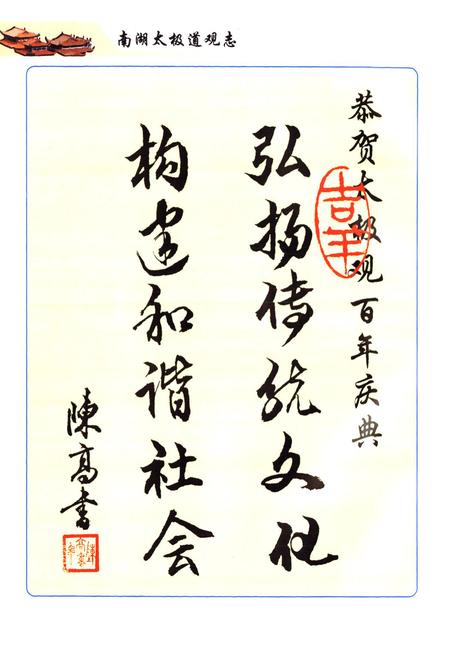 南湖太极道观志
恭贺太极观百年庆典
弘扬传统文化
构建和谐社会
陈高书